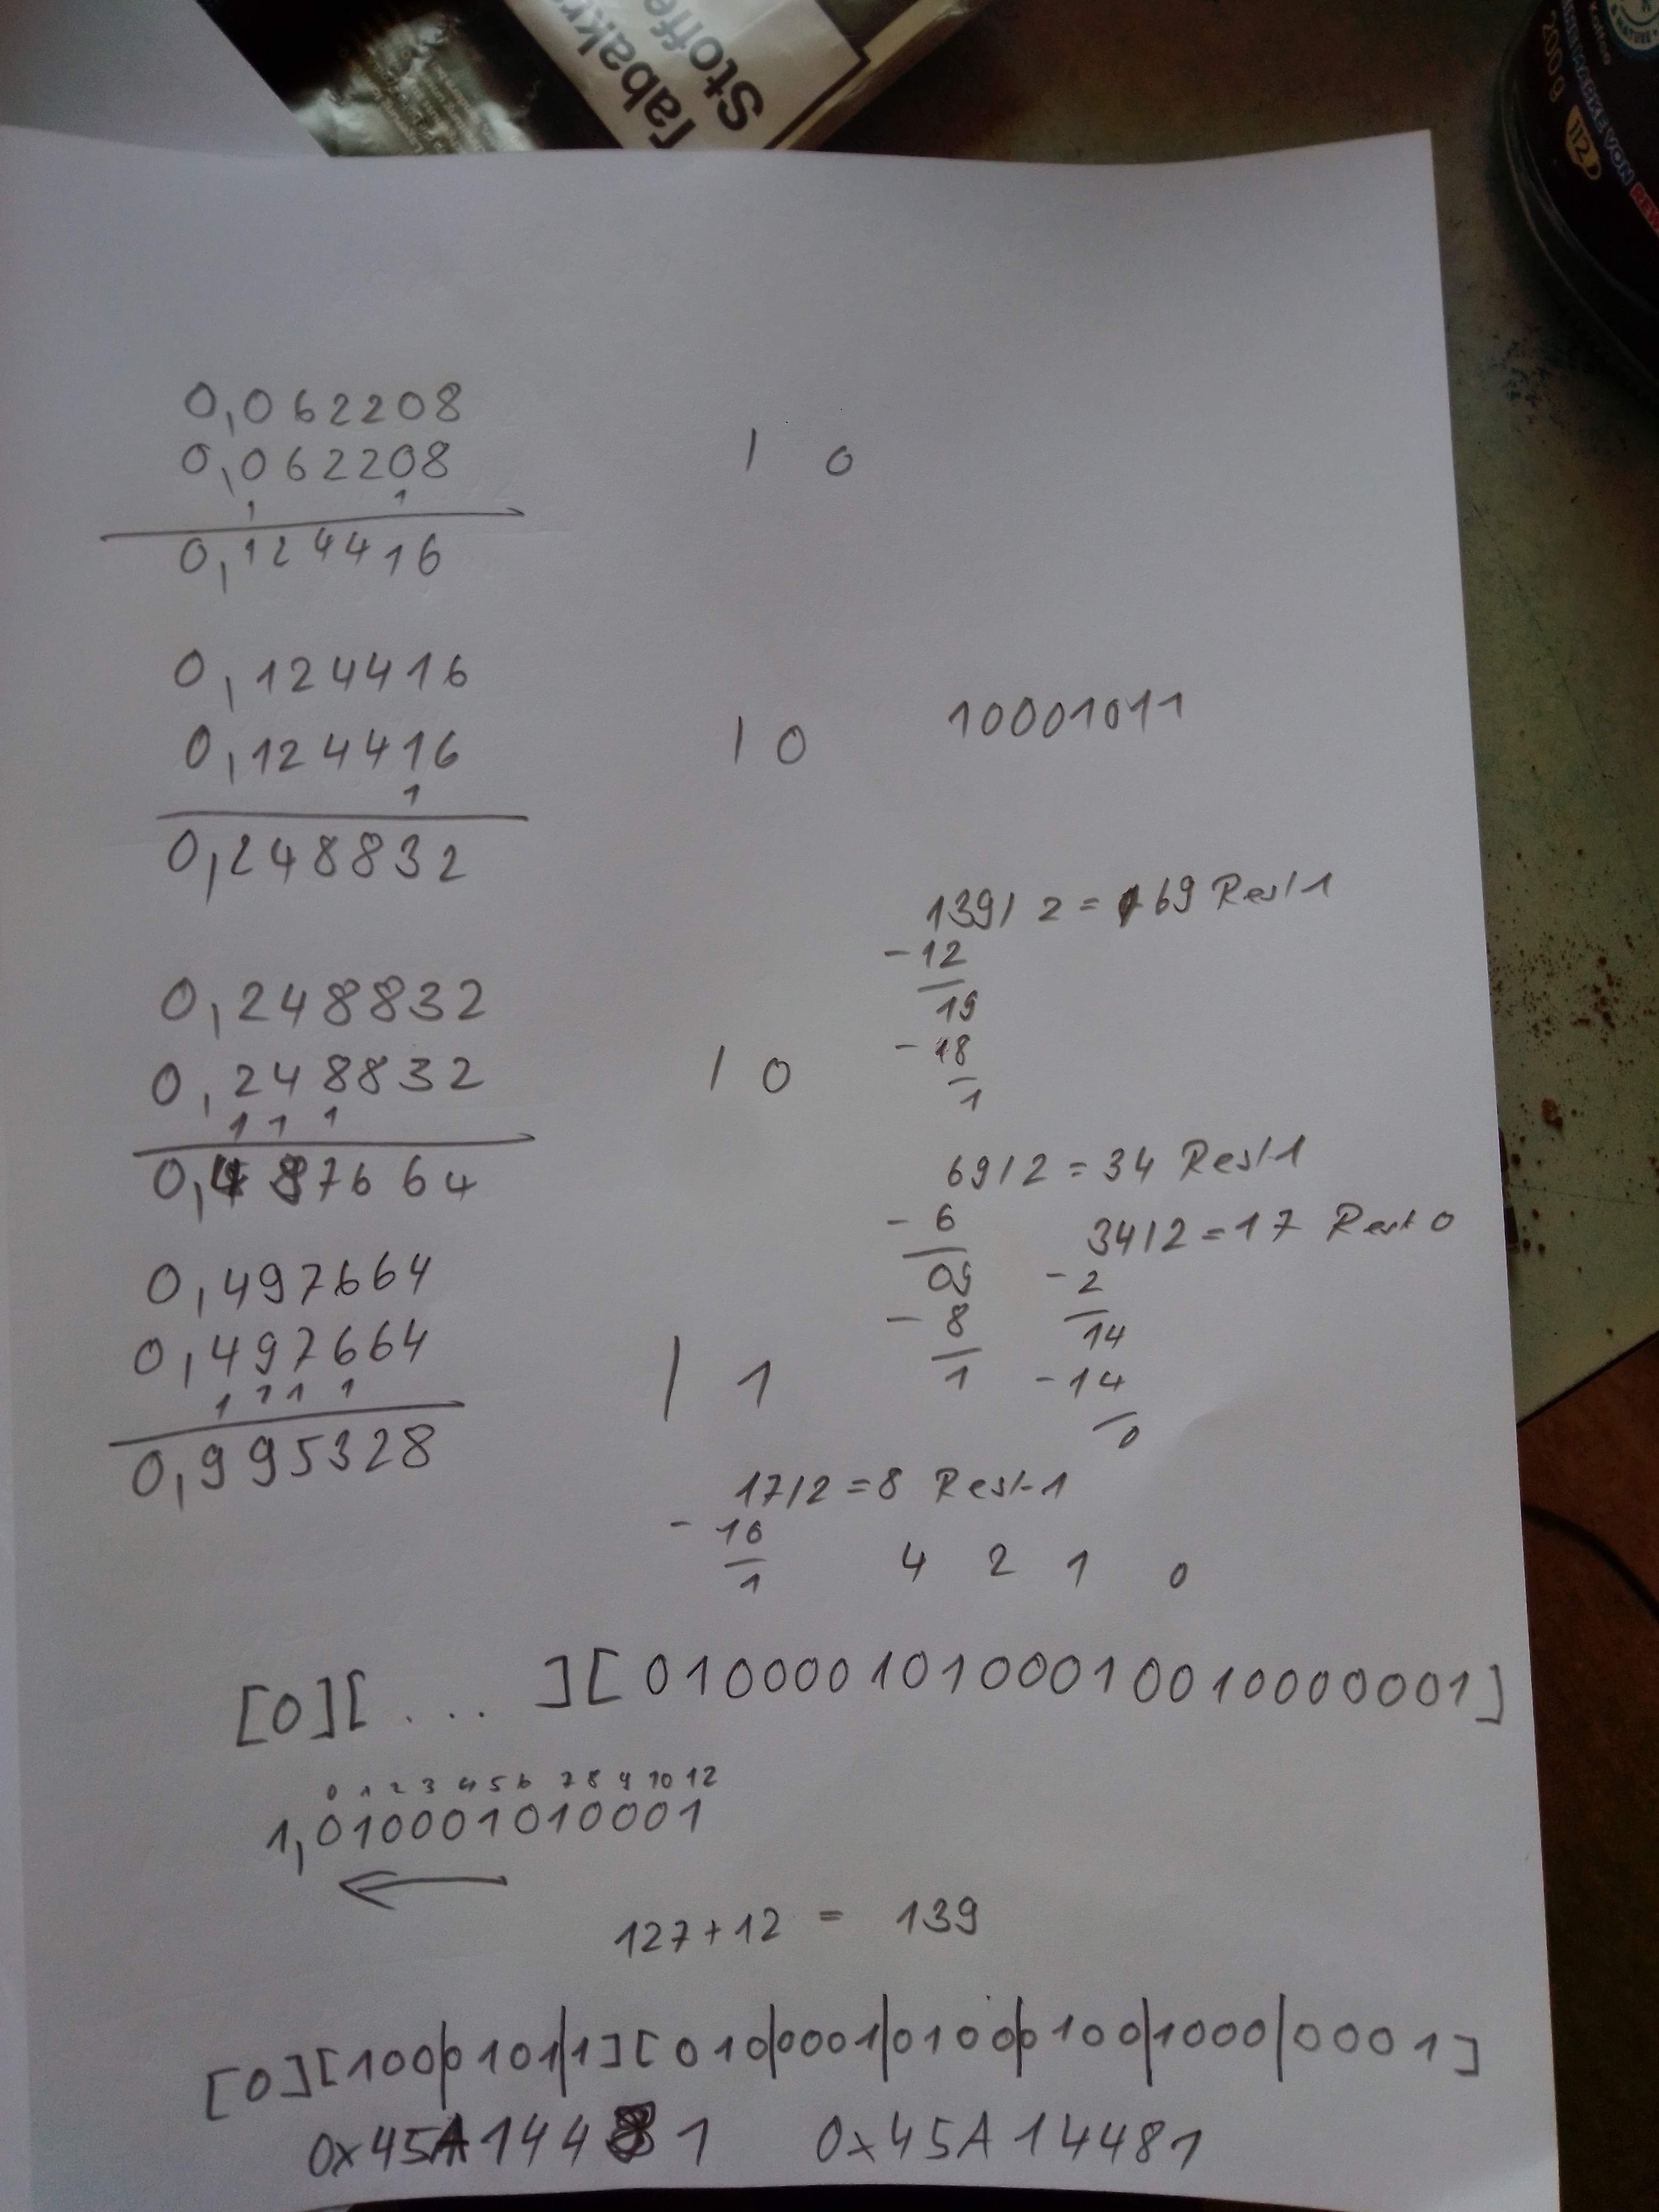 Tabakr
Stoffe
Kaffee
200g
112
0,062208
0,062208 | 0
1 1
0,124416
0,124416
0,124416 | 0 10001011
1
0,248832
139/2 = 69 Rest 1
-12
19
-18
1
0,248832
0,248832 | 0
1 1 1
0,487664
69/2 = 34 Rest 1
- 6
09
- 8
1
34/2 = 17 Rest 0
- 2
14
-14
0
0,497664
0,497664 | 1
1 1 1 1
0,995328
17/2 = 8 Rest 1
- 16
1
4 2 1 0
[0][ . . . ][01000010100010010000001]
0 1 2 3 4 5 6 7 8 9 10 12
1,010001010001
127+12 = 139
[0][100|0101|1][010|0001|0100|0100|1000|0001]
0x45A14481 0x45A14481